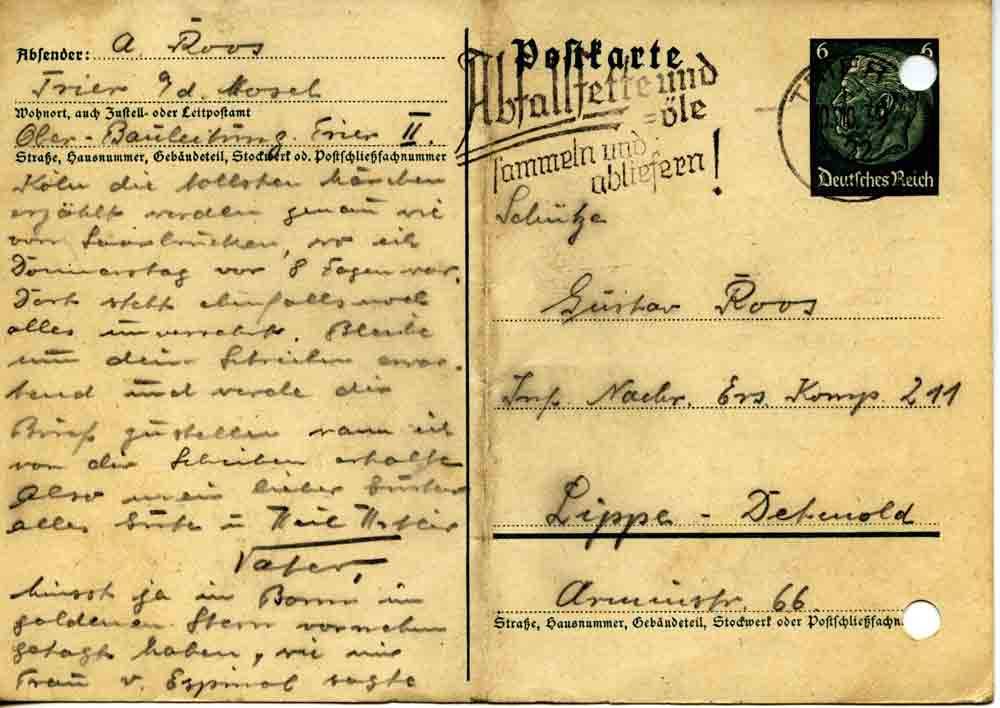 Absender: A. Roos
Trier a/d. Mosel
Wohnort, auch Zustell- oder Leitpostamt
Ober-Bauleitung Trier II.
Straße, Hausnummer, Gebäudeteil, Stockwerk od. Postschließfachnummer
Köln die tollsten Märchen
erzählt werden genau wie
von Saarbrücken, wo ich
Donnerstag vor 8 Tagen war.
Dort steht ebenfalls noch
alles unversehrt. Bleibe
nun dein Schreiben erwar-
tend und werde die
Brief zustellen wann ich
von dir Schreiben erhalte
Also mein lieber Gustav
alles Gute u Heil Hitler
Vater,
ja in Bonn im
goldenen Stern vornehm
getagt haben, wie mir
Frau v. sagte
Postkarte
Abfallfette und
=öle
sammeln und
abliefern!
6 6
Deutsches Reich
Schütze
Gustav Roos
Inf. Nachr. Ers. Komp. 211
Lippe - Detmold
Arminstr. 66.
Straße, Hausnummer, Gebäudeteil, Stockwerk oder Postschließfachn.